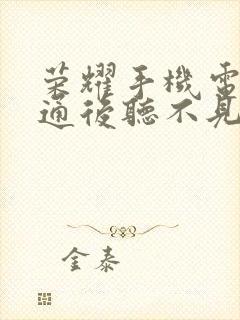 荣耀手機電
通後聽不見
金泰